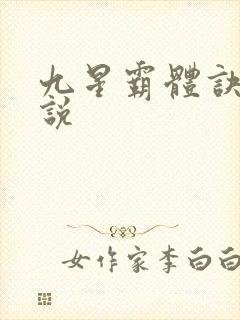 九星霸體訣
說
女作家李白白